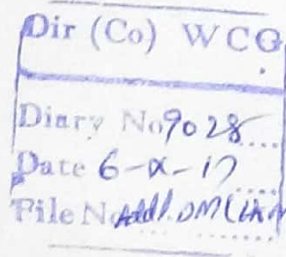 Dir (Co) WCG
Diary No 9028
Date 6-x-17
File No Addl. DM (LA)